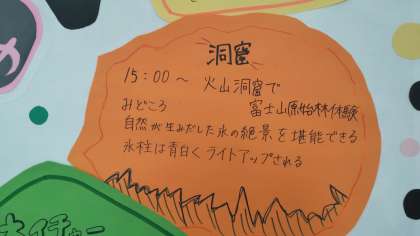 洞窟
15:00～ 火山洞窟で
みどころ 富士山原始林体験
自然が生みだした氷の絶景を堪能できる
氷柱は青白くライトアップされる
ネイチャー